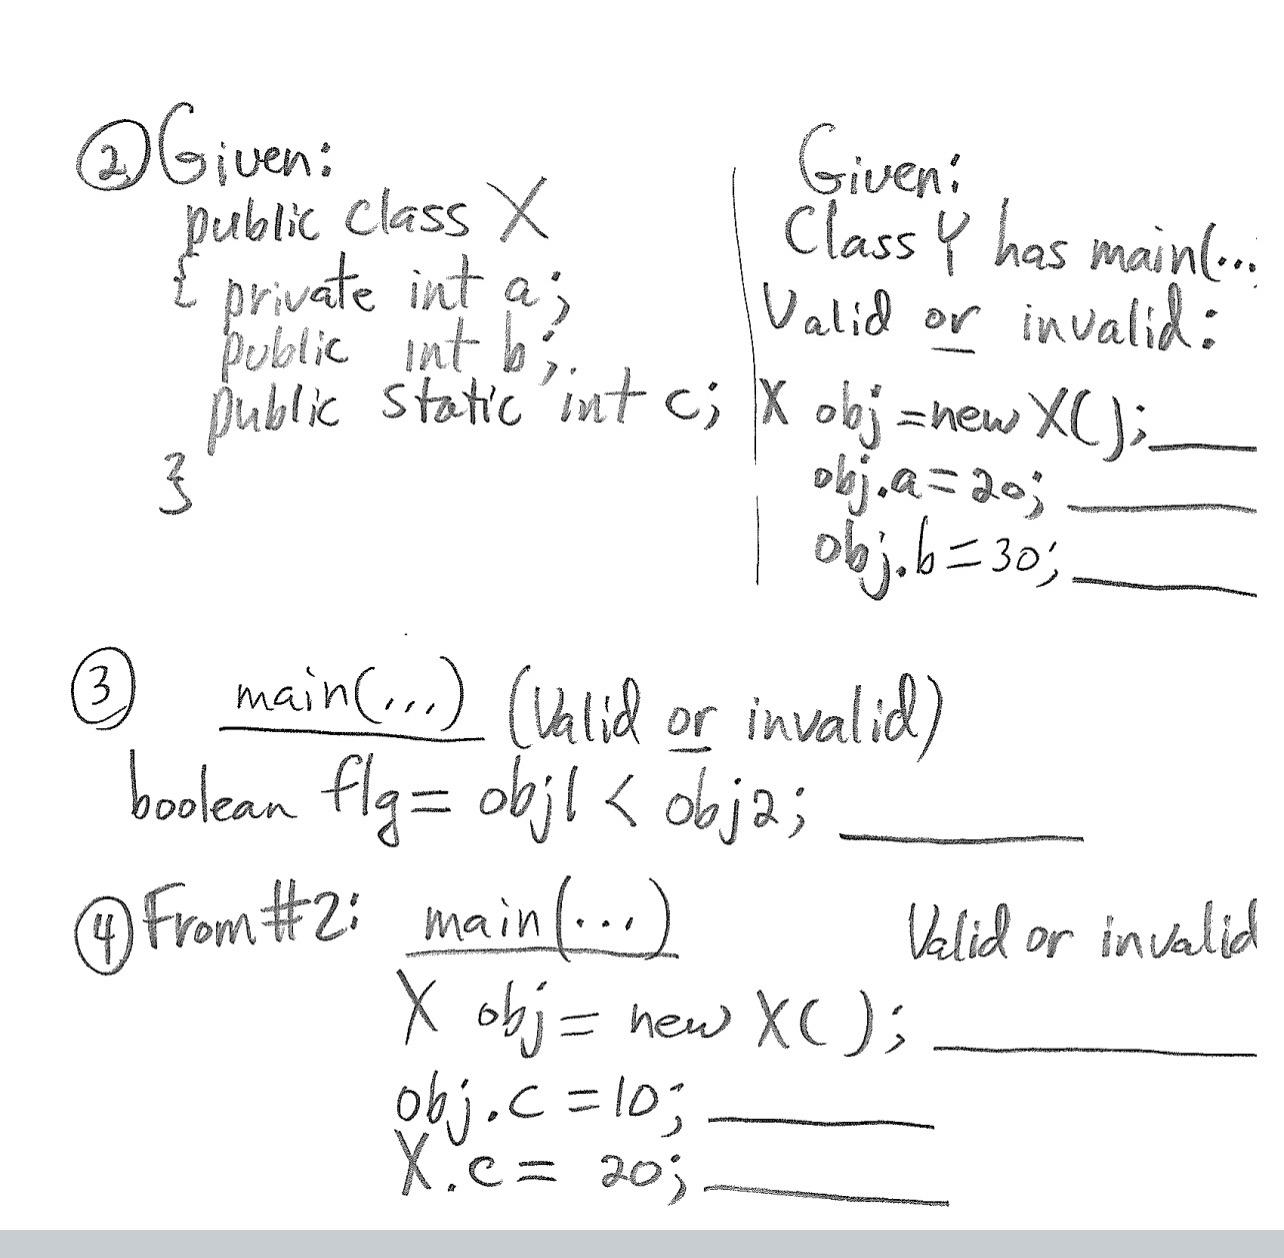 ② Given:
public class X
{ private int a;
public int b;
public static int c;
}
Given:
Class Y has main(...
Valid or invalid:
X obj = new X();
obj.a = 20;
obj.b = 30;
③ main(...) (Valid or invalid)
boolean flg = obj1 < obj2;
④ From #2: main(...) Valid or invalid
X obj = new X();
obj.c = 10;
X.c = 20;